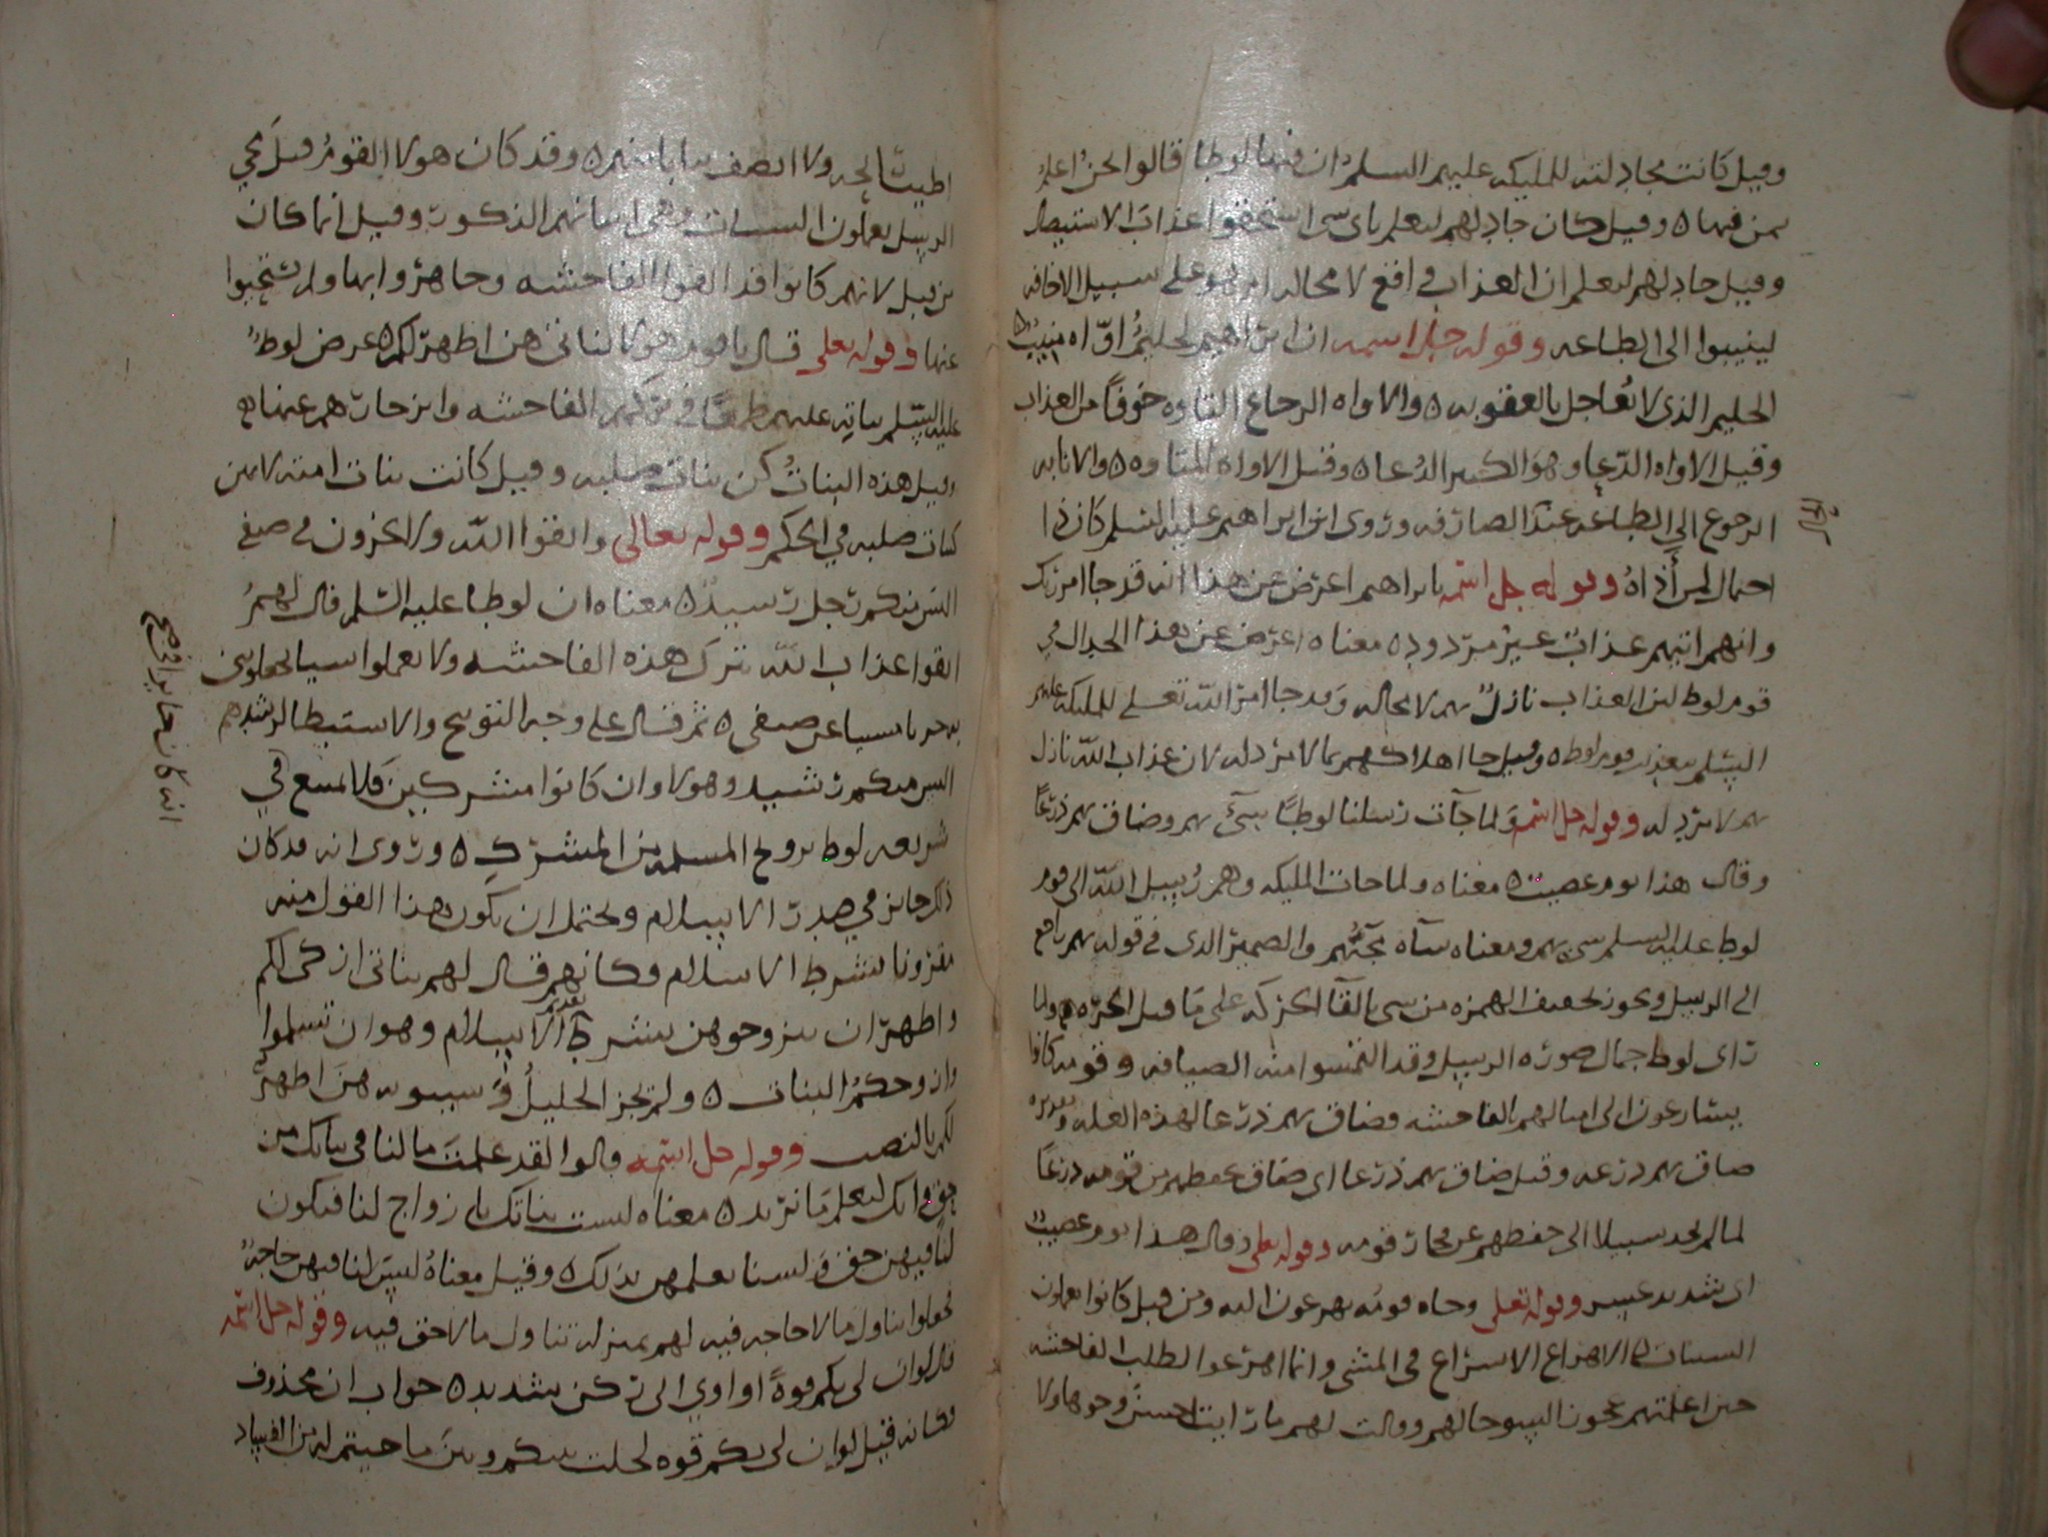 وقيل كانت مجادلته للمليكه عليهم السلم ان فيها لوطا قالوا نحن اعلم
بمن فيها ٥ وقيل كان جادلهم ليعلم باى شى استحقوا عذاب الاستيصال
وقيل جادلهم ليعلم ان العذاب واقع لا محاله ام هو على سبيل الاخافه
لينيبوا الى الطاعه وقوله جل اسمه ان ابراهيم لحليم اوّاه منيب ٥
الحليم الذى لا يُعاجل بالعقوبه ٥ والاواه الرجاع التاوه خوفًا من العذاب
وقيل الاواه الدّعا وهو الكثير الدُعا ٥ وقيل الاواه المتاوه ٥ والانابه
الرجوع الى الطاعه عند الصارفه وروى ان ابراهيم عليه السلم كان ذا
احتمال لمن أذاهُ وقوله جل اسمه يابراهيم اعرض عن هذا انه قد جا امر ربك
وانهم اتيهم عذاب غير مردود ٥ معناه اعرض عن هذا الجدال في
قوم لوط لان العذاب نازل بهم لا محاله وقد جا امر الله تعلى للمليكه عليهم
السّلم بعذيب قوم لوط ٥ وقيل جا اهلاكهم بما لا مرد له لان عذاب الله نازل
بهم لا مرد له وقوله جل اسمه ولما جآت رسلنا لوطًا سىء بهم وضاق بهم ذرعًا
وقال هذا يوم عصيب ٥ معناه ولما جات المليكه وهم رُسل الله الى قوم
لوط عليه السلم سى بهم ومعناه سآه مجئهم والضمير الذى في قوله بهم راجع
الى الرسل ويجوز تخفيف الهمزه من سى بالقآ الحركه على ما قبل ولما
راى لوط جمال صوره الرسل وقد التمسوا منه الضيافه وقومه كانوا
يسارعون الى امثالهم بالفاحشه فضاق بهم ذرعا لهذه العله وتقديره
ضاق بهم ذرعه وقيل ضاق بهم ذرعا اى ضاق بحفظهم من قومه ذرعًا
لما لم يجد سبيلا الى حفظهم عن فجار قومه وقوله تعلى وقال هذا يوم عصيب
اى شديد عسير وقوله تعلى وجاه قومُه يهرعون اليه ومن قبل كانوا يعملون
السيئات الاهراع الاسراع فى المشى وانما اهرعوا لطلب الفاحشه
حين اعلمتهم عجوز السوحالهم وقالت لهم ما رايت احسن وجوها ولا
اطيب ولا انظف ثيابا منهم ٥ وقد كان هولا القوم قبل مجي
الرسل يعملون السيئات وهى اتيانهم الذكور وقيل انما كان
من قبل لانهم كانوا قد الفوا الفاحشه وجاهروا بها ولم يستحيوا
عنها وقوله تعلى قال ياقوم هولا بناتى هن اطهر لكم ٥ عرض لوط
عليه السّلم بناته عليهم طمعًا في تركهم الفاحشه وانزجارهم عنها
وقيل هذه البنات كن بنات صلبه وقيل كانت بنات امته لانهن
كبنات صلبه في الحكم وقوله تعالى واتقوا الله ولا تخزون فى ضيفي
اليس منكم رجل رشيد ٥ معناه ان لوطا عليه السّلم قال لهم
اتقوا عذاب الله بترك هذه الفاحشه ولا تعملوا شيا
ضيفى ٥ ثم قال على وجه التوبيخ والاستبطا لرشدهم
اليس منكم رشيد وهولا وان كانوا مشركين فلا يمتنع في
شريعه لوط تزويج المسلمه من المشرك ٥ وروى انه قد كان
ذلك جايز في صدر الاسلام ويحتمل ان يكون هذا القول منه
مقرونا بشرط الاسلام وكانهم قال لهم بناتى ازكى لكم
واطهر ان تتزوجوهن بشرط تقديم الاسلام وهو ان تسلموا
وازوجكم البنات ٥ ولم يجز الخليل و سيبويه هن اطهر
لكم بالنصب وقوله جل اسمه قالوا لقد علمت ما لنا في بناتك من
حق وانك لتعلم ما نريد ٥ معناه ليست بناتك بازواج لنا فيكون
لنا فيهن حق ولسنا بذلك ٥ وقيل معناه ليس لنا فيهن حاجه
فجعلوا تناول ما لا حاجه فيه لهم بمنزله تناول ما لا حق فيه وقوله جل اسمه
قال لو ان لى بكم قوةً او اوي الى ركن شديد ٥ جواب ان محذوف
وكانه قيل لو ان لى بكم قوه لحلت بينكم وبين ما جيتم له من الفساد